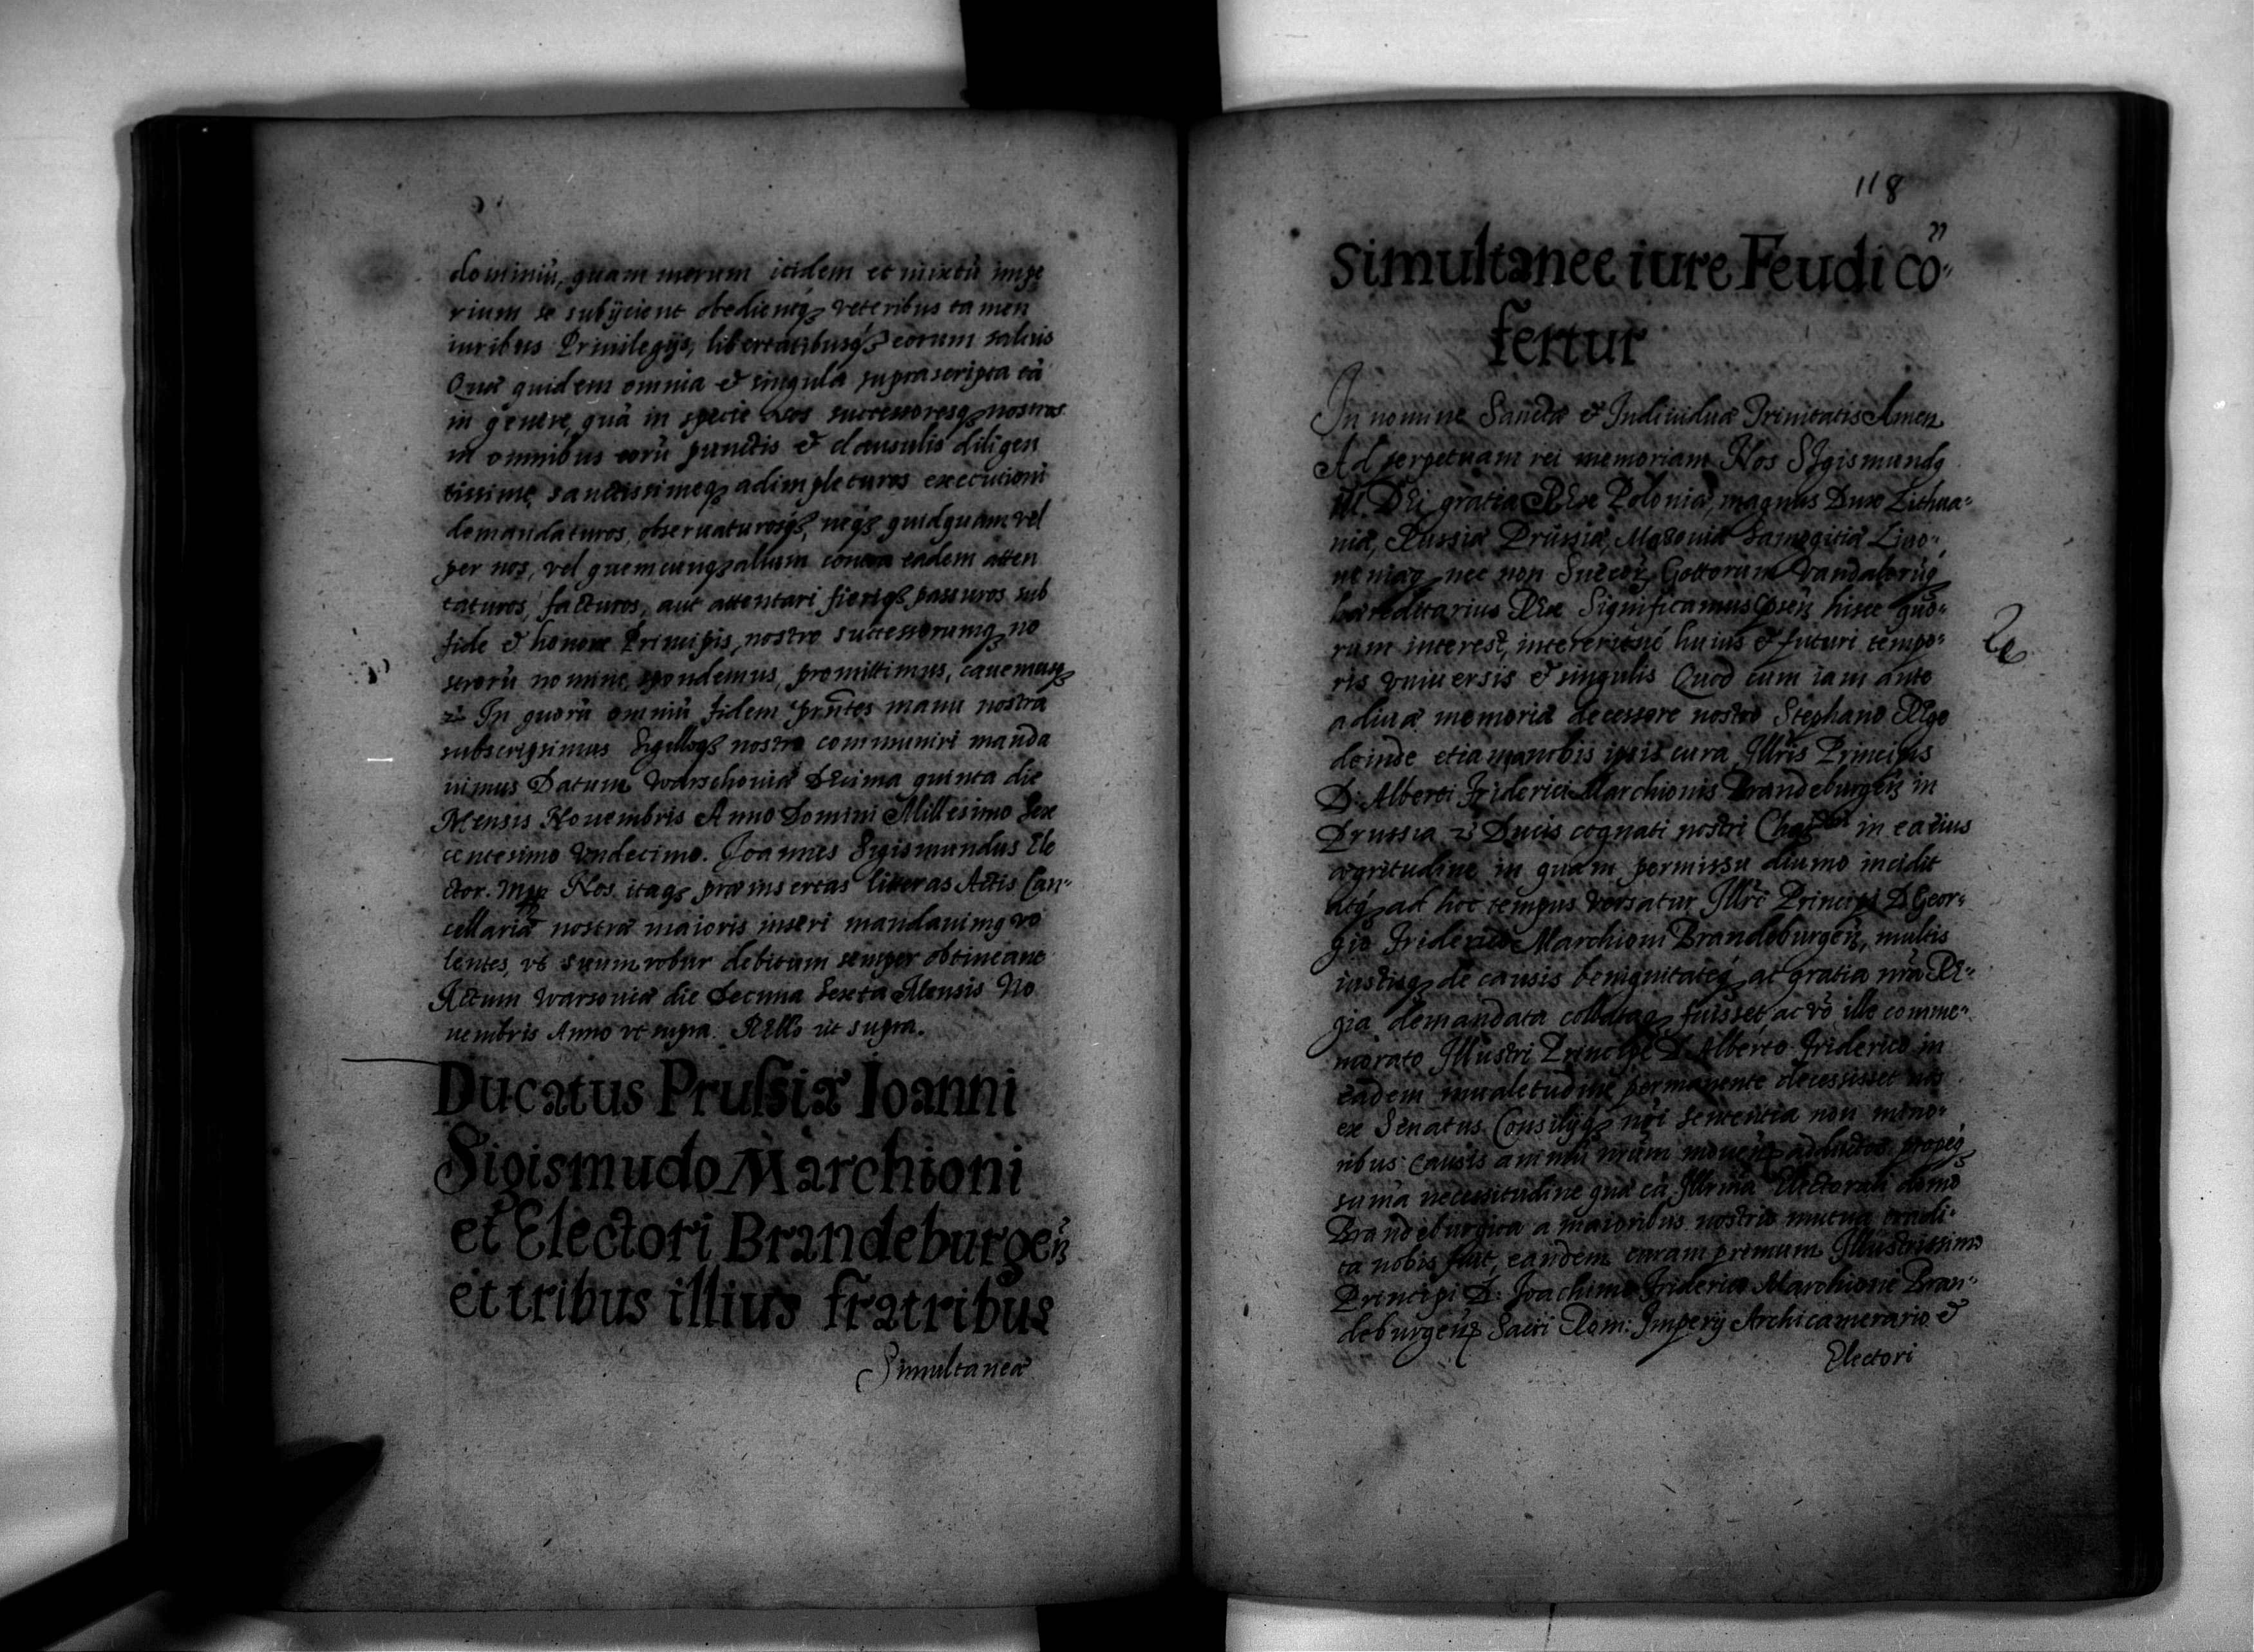 dominiũ, quam merum itidem et mixtũ impe
rium se subÿcient obedientq₃ veteribus tamen
iuribus Priuilegijs, libertatibusq₃ eorum saluis
Quæ quidem omnia & singula suprascripta tã
in genere, quã in specie nos successoresq₃ nostros
in omnibus eorũ punctis & clausulis diligen
tissime, sanctissimeq₃ adimpleturos executioni
demandaturos, obseruaturosq₃, neq₃ quidquam vel
per nos, vel quemcunq₃ alium contra eadem atten
taturos, facturos, aut attentari fieriq₃ passuros sub
fide & honore Principis, nostro successorumq₃ no
strorũ nomine, spondemus, promittimus, cauemusq₃
In quorũ omniũ fidem prñtes manu nostra
subscripsimus Sigilloq₃ nostro communiri manda
uimus Datum Warschouiæ Decima quinta die
Mensis Nouembris Anno Domini Millesimo Sex
centesimo Vndecimo. Joannes Sigismundus Ele
ctor. Mpp Nos itaq₃ præinsertas literas Actis Can-
cellariæ nostræ maioris inseri mandauimq vo
lentes, vt suum robur debitum semper obtineant
Actum Warsouiæ die Decima Sexta Mensis No
uembris Anno vt supra. RElło ut supra.
Ducatus Prussiæ Ioanni
Sigismudo Marchioni
et Electori Brandeburgeñ
et tribus illius fratribus
Simultaneæ
118
simultanee iure Feudi cõ-
fertur
In nomine Sanctæ & Indiuiduæ Trinitatis Amen
Ad perpetuam rei memoriam Nos SIgismundq
III. DEi gratia REx Poloniæ, magnus Dux Lithua-
niæ, Russiæ Prussiæ, Masouiæ Samogitiæ Liuo-
niæq₃ nec non Suecorꝝ Gottorum Vandalorũq₃
hæreditarius REx Significamus hisce quo-
rum interest, intererituè huius & futuri tempo-
ris vniuersis & singulis Quod cum iam ante
a diuæ memoriæ decessore nostro Stephano REge
deinde etiam a nobis ipsis cura Jllris Principis
D: Alberti Friderici Marchionis Brandeburgeñ in
Prussia Ducis cognati nostri in ea eius
ægritudine in quam permissu diuino incidit
atq₃ ad hoc tempus versatur Jllri Principi D Geor-
gio Friderico Marchioni Brandeburgeñ, multis
iustisq₃ de causis benignitateq₃ ac gratia nra RE-
gia demandata collataq₃ fuisset, ac vo ille comme-
morato Jllustri Principe D: Alberto Friderico in
eadem inualetudine permanente decessisset nos
ex Senatus Consilijq₃ nri sententia non mino-
ribus causis animũ nrum adductos, propeq₃
suma necessitudine quæ cũ Jllrma Electorali domo
Brandeburgica a maioribus nostris mutua tradi-
ta nobis fuit, eandem curam primum Jllustrissimo
Principi D: Joachimo Friderico Marchioni Bran-
deburgenꝫ Sacri Rom: Imperÿ Archicamerario &
Electori